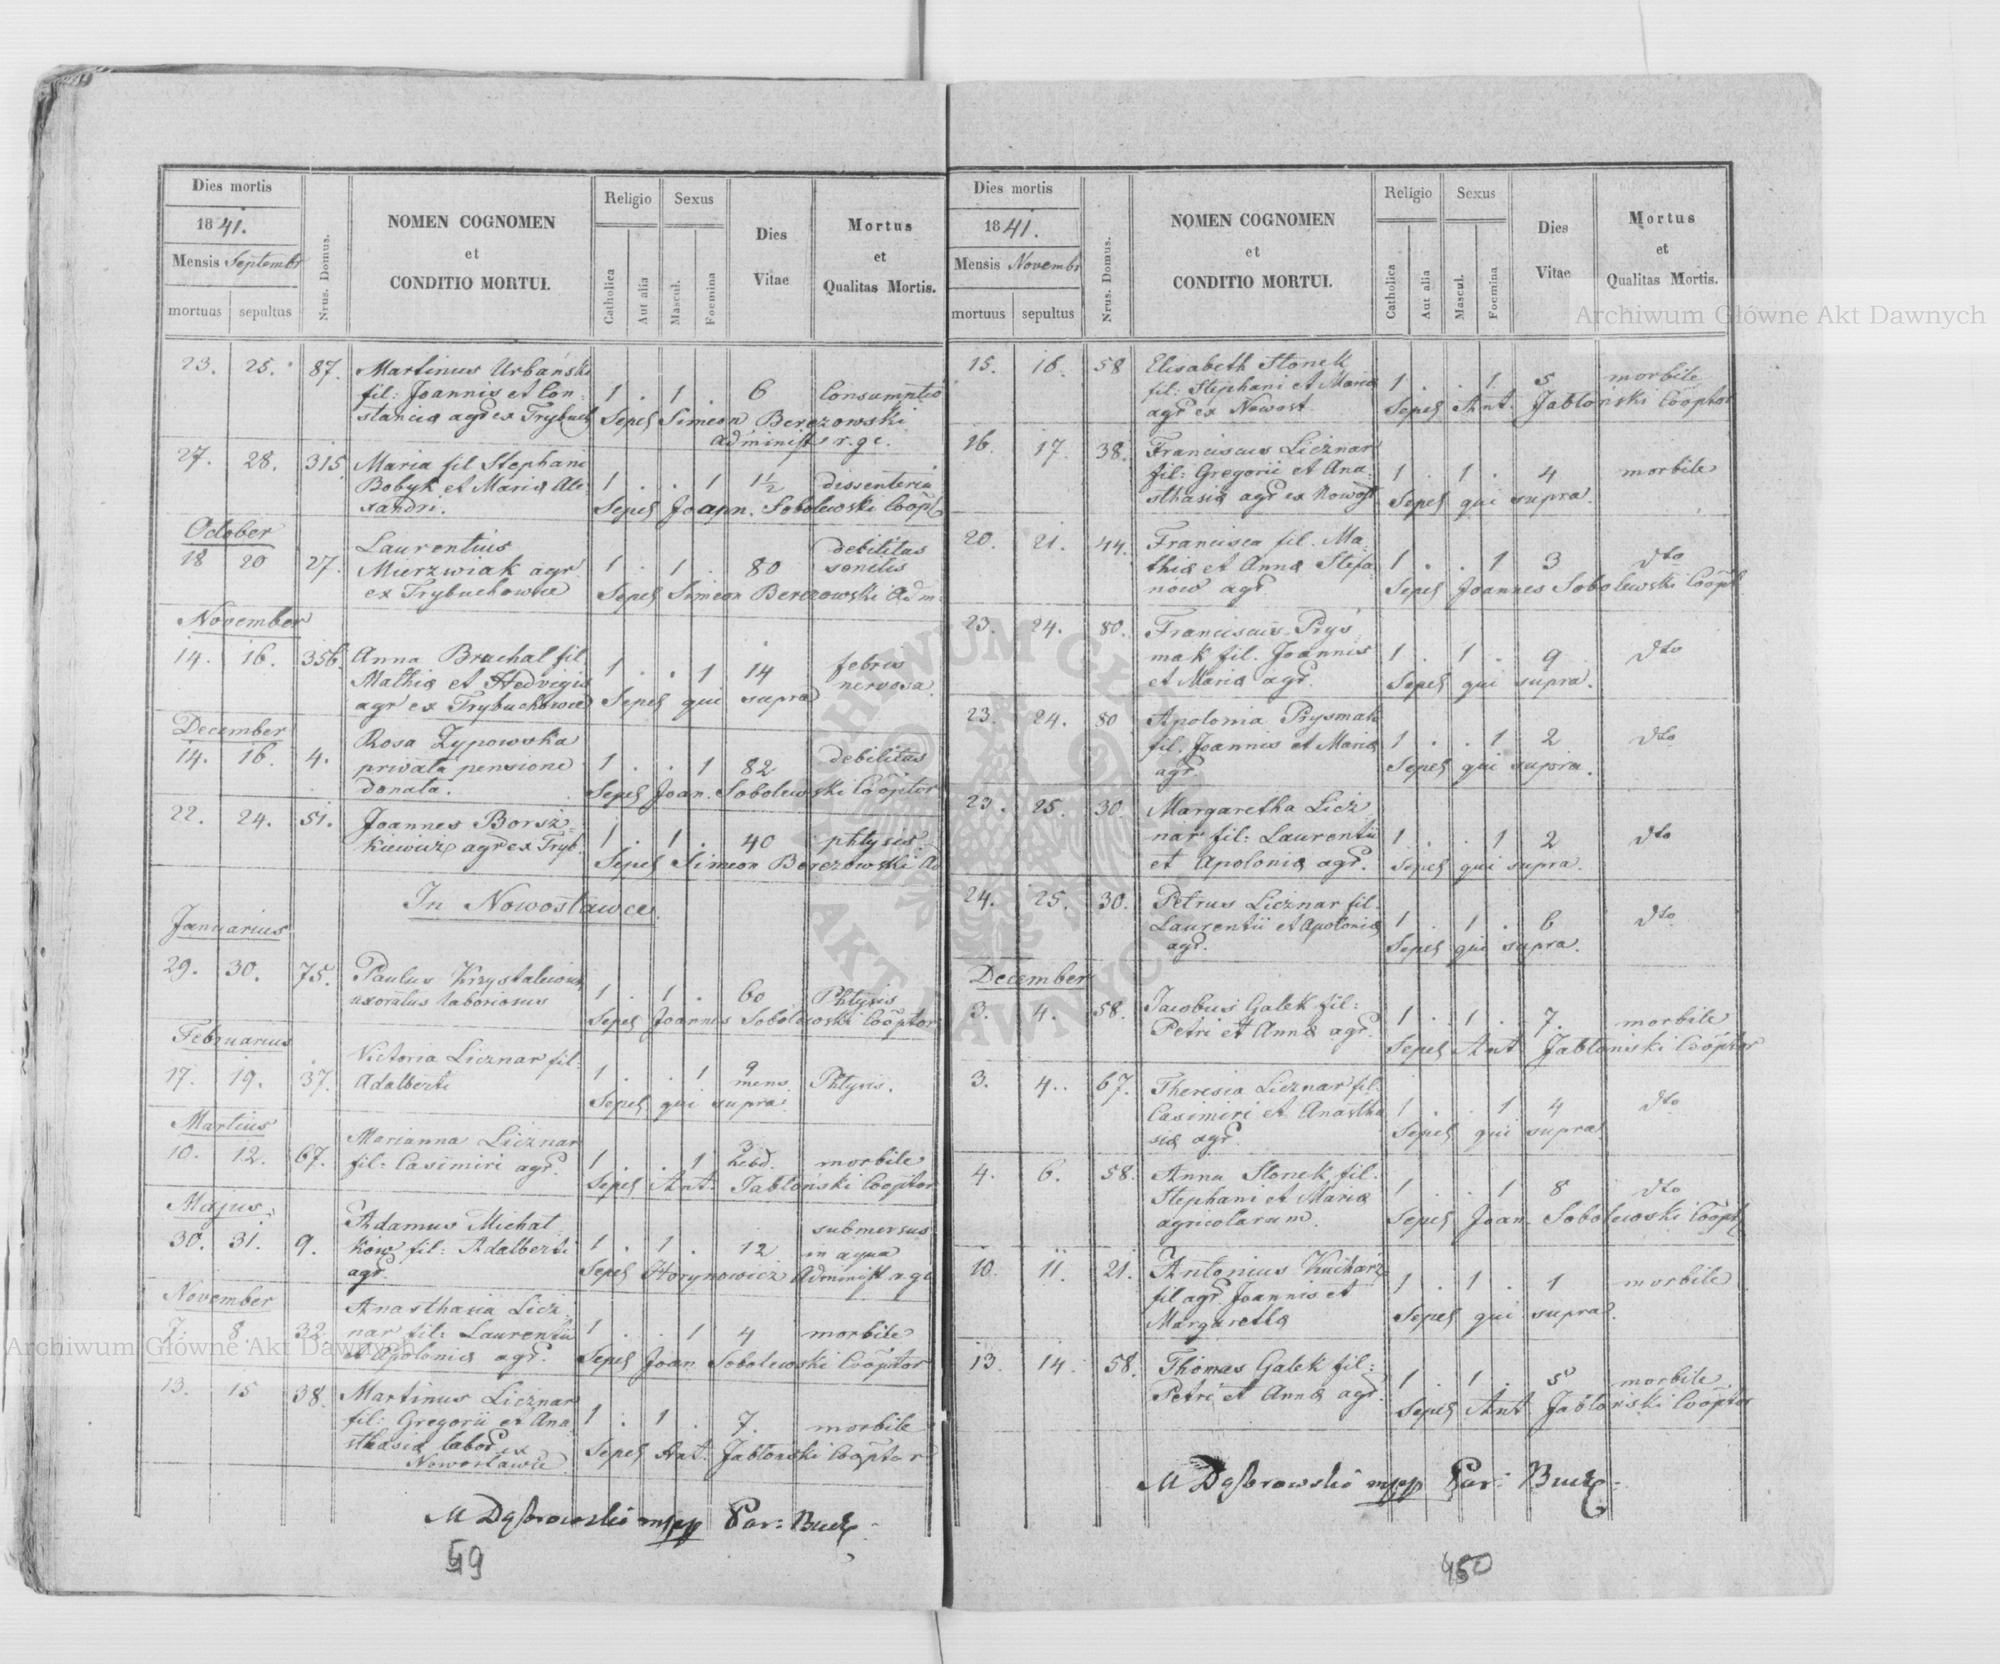 Dies mortis
1841.
Mensis Septembr
mortuus sepultus
Nrus. Domus.
NOMEN COGNOMEN
et
CONDITIO MORTUI.
Religio
Catholica
Aut alia
Sexus
Mascul.
Foemina
Dies
Vitae
Mortus
et
Qualitas Mortis.
23. 25. 87. Martinus Urbański
fil: Joannis et Con= 1 . 1 . 6 Consumptio
stancia agr ex Trybuch Sepel Simeon Berezowski
Administr r. g c.
27. 28. 315 Maria fil Stephani
Bobyk et Maria Ale= 1 . . 1 1½ dessenteria
xandri. Sepel Joann. Sobolewski Coopt
October
18 20 27. Laurentius debilitas
Murzwiak agr 1 . 1 . 80 senilis
ex Trybuchowce Sepel Simeon Berezowski Adm.
November
14. 16. 356. Anna Bruchal fil 1 . . 1 14 febris
Mathia et Hedvigis nervosa
agr ex Trybuchowce Sepel qui supra
December
14. 16. 4. Rosa Zypowska
privata pensione 1 . . 1 82 debilitas
donata. Sepel Joan. Sobolewski Cooptor
22. 24. 51. Joannes Borsz=
kiewicz agr ex Tryb. 1 . 1 . 40 phtysis.
Sepel Simeon Berezowski Ad
In Nowostawce.
Januarius
29. 30. 75. Paulus Krzystalowicz
uxoratus laboriosus 1 . 1 . 60 Phtysis
Sepel Joannes Sobolewski Cooptor
Februarius
17. 19. 37. Victoria Licznar fil: 9
Adalberti 1 . . 1 mens. Phtysis.
Sepel qui supra
Martius
10. 12. 67. Marianna Licznar 3
fil: Casimiri agr. 1 . . 1 hebd. morbile
Sepel Ant. Jabłoński Cooptor
Majus.
30. 31. 9. Adamus Michal submersus
ków fil: Adalberti 1 . 1 . 12 in aqua
agr. Sepel Horynowicz Administ r. g c
November
7. 8. 32. Anasthasia Licz
nar fil: Laurentii 1 . . 1 4 morbile
et Apolonia agr. Sepel Joan Sobolewski Cooptor
13. 15 38. Martinus Licznar
fil: Gregorii et Ana 1 . 1 . 7. morbile
sthasia labor ex Sepel Ant. Jabłonski Cooptor
Nowostawce
M Dąbrowski mpp Par: Bucz
59
Dies mortis
1841.
Mensis Novembr
mortuus sepultus
Nrus. Domus.
NOMEN COGNOMEN
et
CONDITIO MORTUI.
Religio
Catholica
Aut alia
Sexus
Mascul.
Foemina
Dies
Vitae
Mortus
et
Qualitas Mortis.
15. 16. 58 Elisabeth Slonek
fil: Stephani et Maria 1 . . 1 5 morbile
agr ex Nowost. Sepel Ant. Jabłoński Cooptor
16. 17. 38. Franciscus Licznar
fil: Gregorii et Ana 1 . 1 . 4 morbile
sthasia agr ex Nowost Sepel qui supra.
20. 21. 44. Francisca fil. Ma=
thia et Anna Stefa 1 . . 1 3 dto
now agr Sepel Joannes Sobolewski Coopt
23. 24. 80. Franciscus Prys
mak fil. Joannis 1 . 1 . 9 dto
et Maria agr. Sepel qui supra.
23. 24. 80 Apolonia Prysmak
fil. Joannis et Maria 1 . . 1 2 dto
agr. Sepel qui supra.
23. 25. 30. Margaretha Licz
nar fil: Laurentii 1 . . 1 2 dto
et Apolonia agr. Sepel qui supra.
24. 25. 30. Petrus Licznar fil.
Laurentii et Apolonia 1 . 1 . 6 dto
agr. Sepel qui supra.
December
3. 4. 58. Jacobus Galek fil:
Petri et Anna agr. 1 . 1 . 7. morbile
Sepel Ant Jabłonski Cooptor
3. 4. 67. Theresia Licznar fil.
Casimiri et Anastha 1 . . 1 4 dto
sia agr. Sepel qui supra
4. 6. 58. Anna Slonek fil.
Stephani et Maria 1 . . 1 8 dto
agricolarum. Sepel Joan. Sobolewski Coopt
10. 11. 21. Antonius Kucharz
fil agr. Joannis et 1 . 1 . 1 morbile
Margaretha Sepel qui supra
13. 14. 58. Thomas Galek fil:
Petri et Anna agr. 1 . 1 . 5 morbile.
Sepel Ant Jabłoński Cooptor
M Dąbrowski mpp Par: Bucz
450
Archiwum Główne Akt Dawnych
Archiwum Główne Akt Dawnych
ARCHIWUM GŁÓWNE AKT DAWNYCH